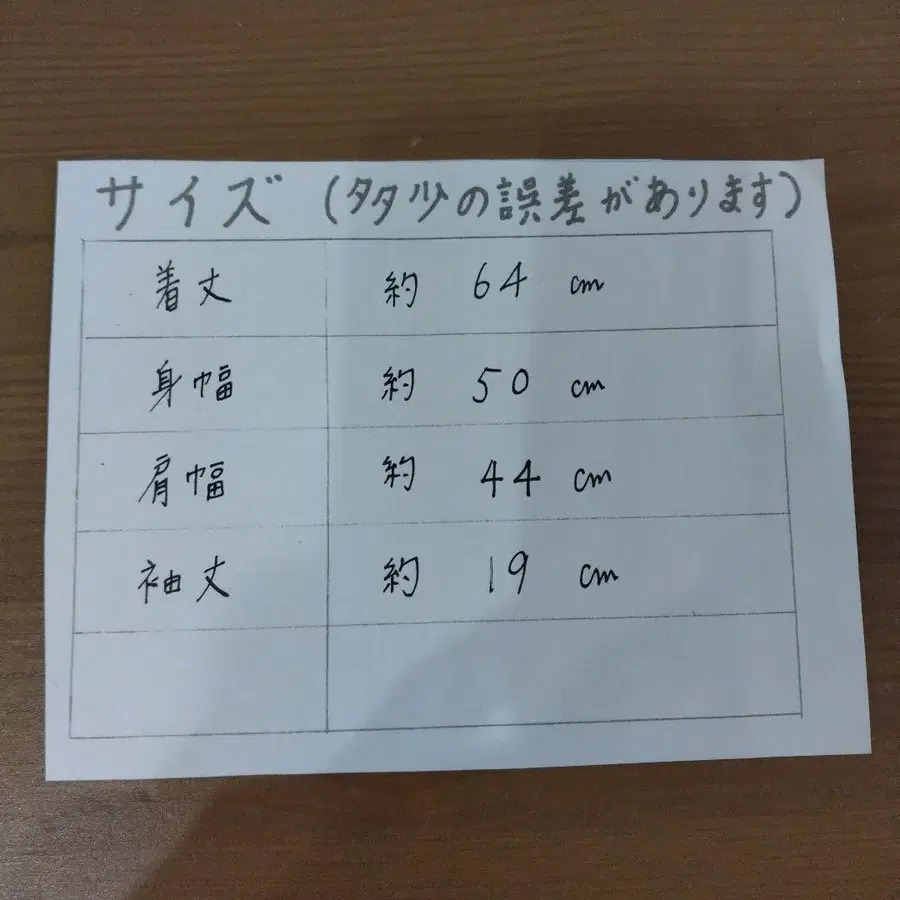 サイズ（多少の誤差があります）
着丈 約 64 cm
身幅 約 50 cm
肩幅 約 44 cm
袖丈 約 19 cm